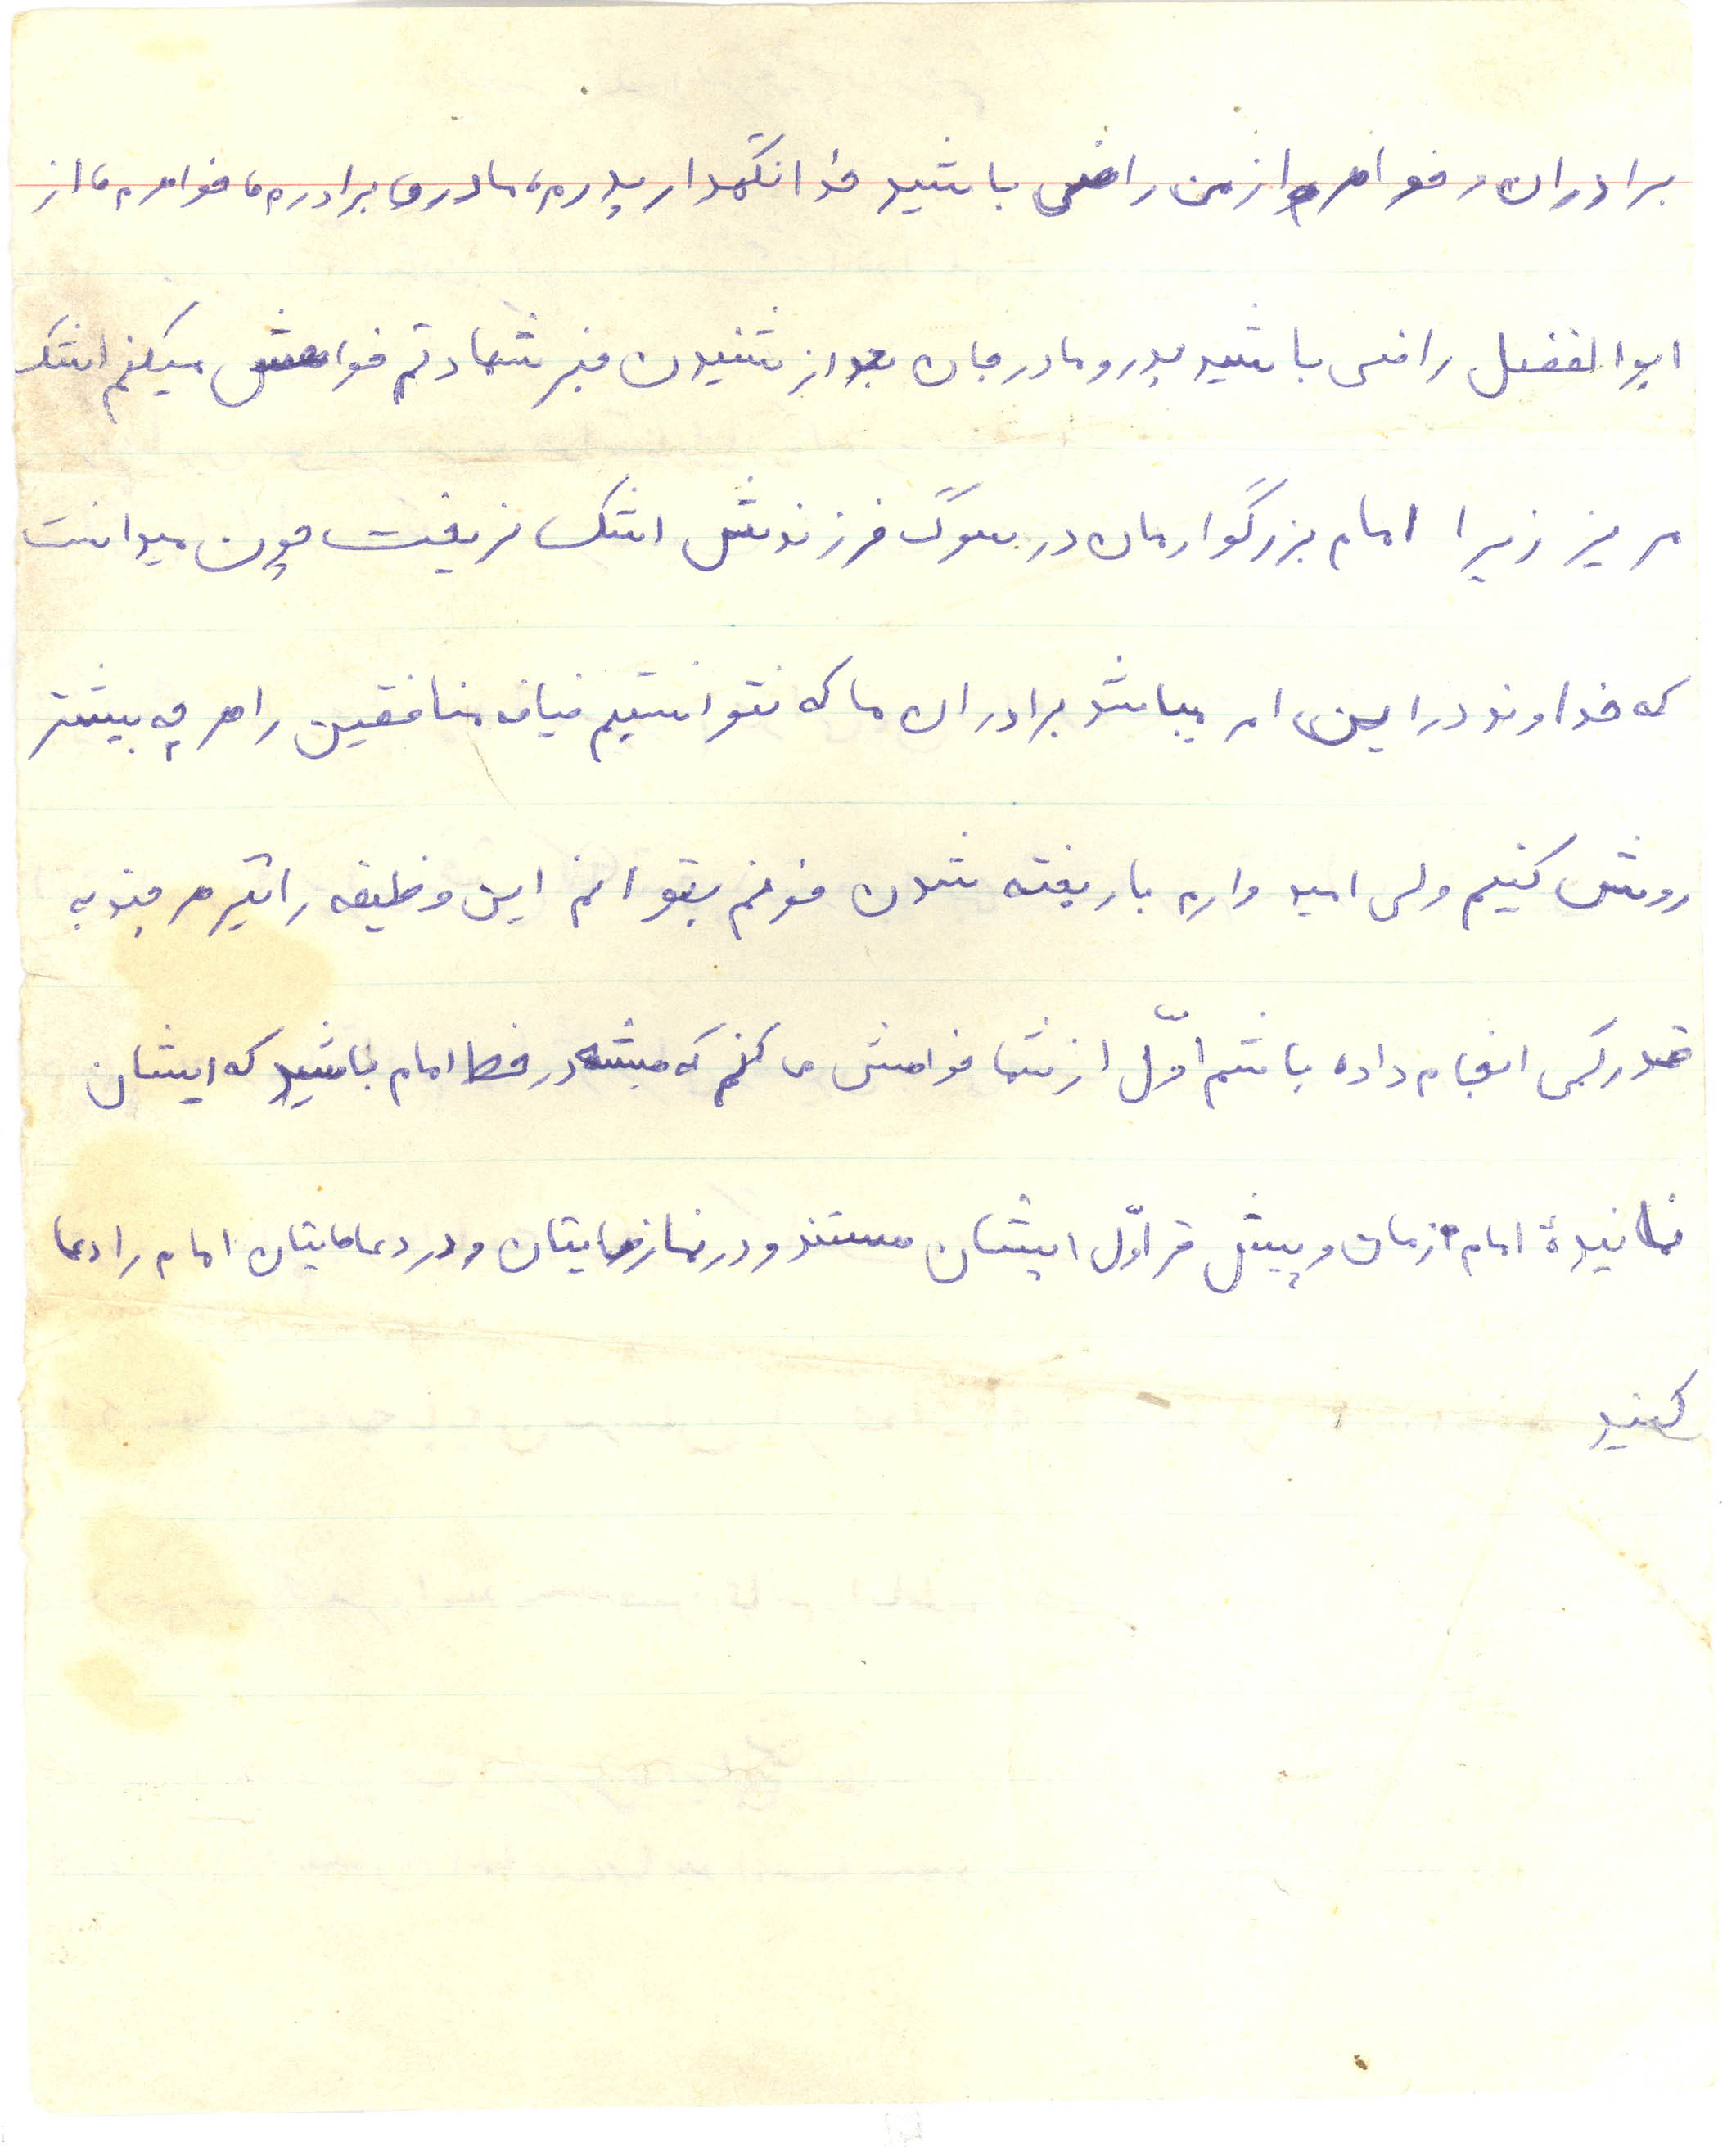 برادران و خواهرم از من راضی باشید خدانگهدار پدرم، مادرم، برادرم، خواهرم، از
ابوالفضل راضی باشید پدر و مادر جان بعد از شنیدن خبر شهادتم خواهش میکنم اشک
مریز زیرا امام بزرگوارمان در سوگ فرزندش اشک نریخت چون میدانست
که خداوند در این امر میباشد برادران ما که نتوانستیم منافقین را هر چه بیشتر
روشن کنیم ولی امیدوارم با ریخته شدن خونم بتوانم این وظیفه را اگر هر چند به
قدر کمی انجام داده باشم اوّل از شما خواهش می کنم که همیشه در خط امام باشید که ایشان
نمایندهٔ امام زمان و پیش قراوّل ایشان هستند و در نمازهایتان و در دعاهایتان امام را دعا
کنید